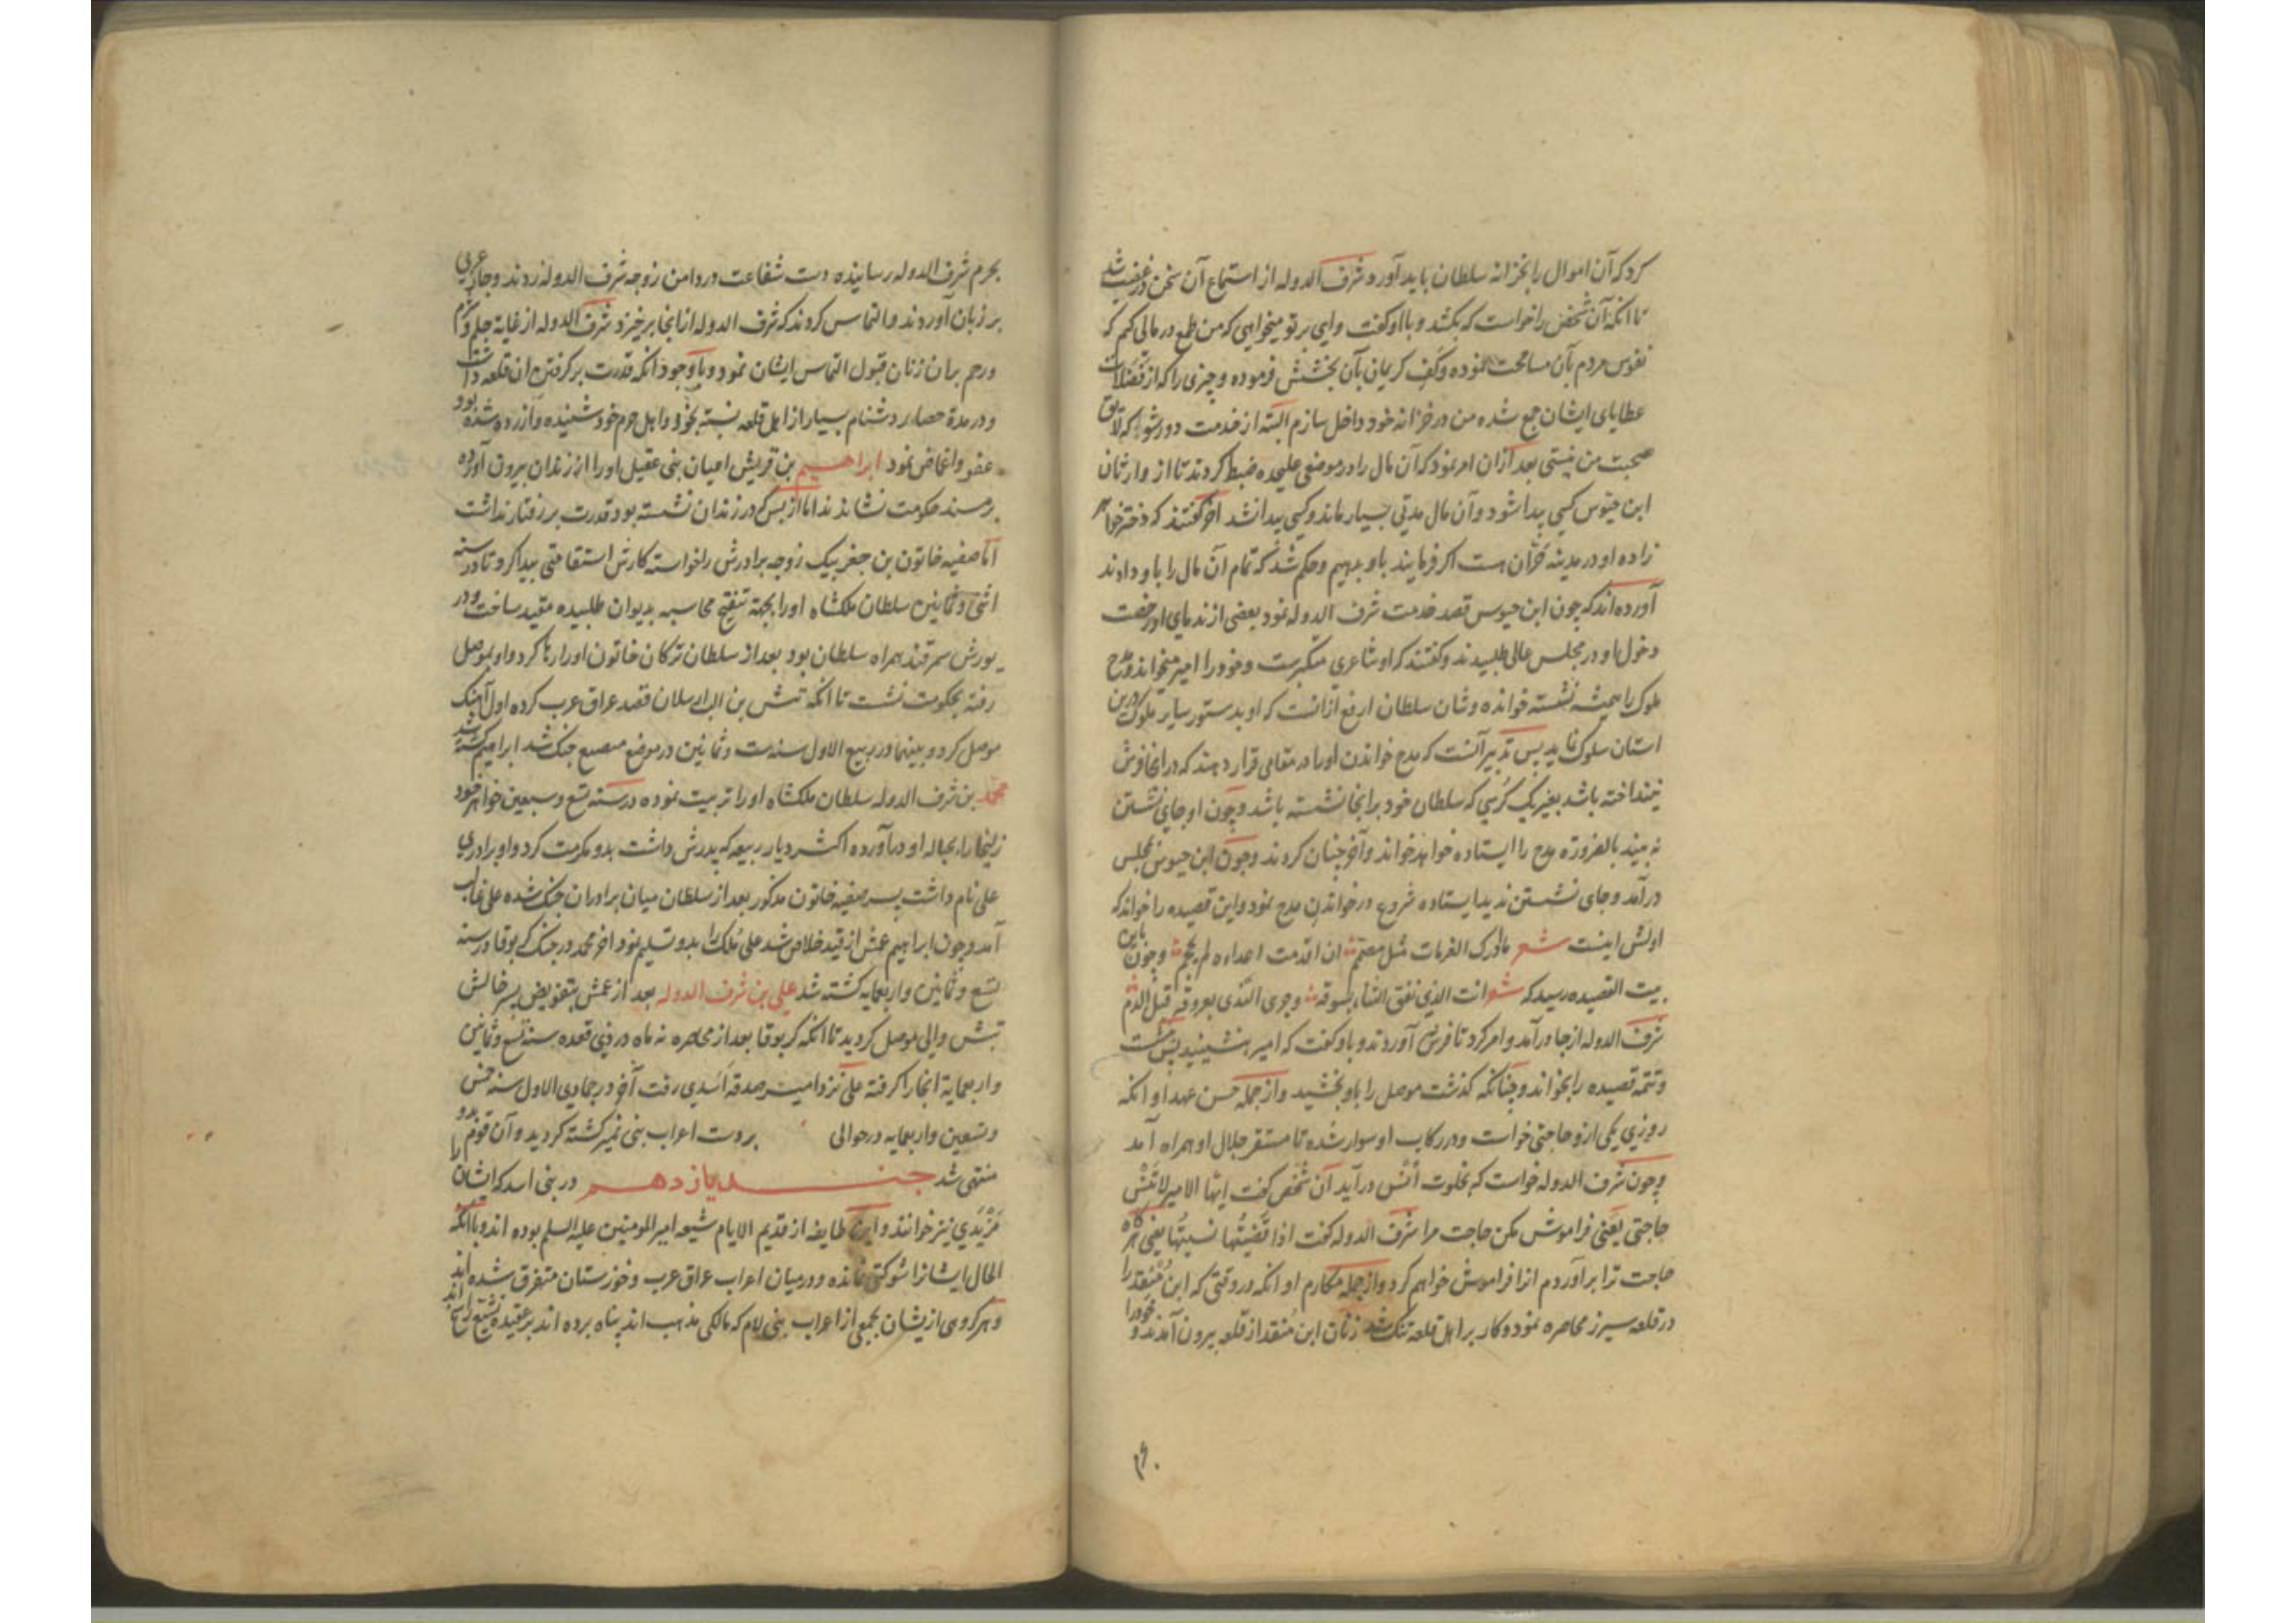 کرد که آن اموال را بخزانه سلطان باید آورد شرف الدوله از استماع آن سخن در غضب شد
تا آنکه آن شخص را خواست که بکشد و با او گفت وای بر تو میخواهی که من طمع در مالی کنم که
نفوس مردم بآن مسامحت نموده و کف کریمان بآن بخشش فرموده و چیزی را که از فضلات
عطایای ایشان جمع شده من در خزانه خود داخل سازم البته از خدمت دور شو که لایق
صحبت من نیستی بعد ازان امر نمود که آن مال را در موضعی علیحده ضبط کردند تا از وارثان
ابن حیوس کسی پیدا شود و آن مال مدتی بسیار ماند و کسی پیدا نشد آخر گفتند که دختر خواهر
زاده او در مدینه حران هست اکر فرمایند باو بدهیم و حکم شد که تمام آن مال را باو دادند
آورده اند که چون ابن حیوس قصد خدمت شرف الدوله نمود بعضی از ندمای او رخصت
دخول او در مجلس عالی طلبیدند و گفتند که او شاعری متکبرست و خود را امیر میخواند و مدح
ملوک را همیشه نشسته خوانده و شان سلطان ارفع ازانست که او بدستور سایر ملوک درین
استان سلوک نماید پس تدبیر آنست که مدح خواندن او را در مقامی قرار دهند که در انجا فرش
نینداخته باشد بغیر یک کرسی که سلطان خود بر انجا نشسته باشد و چون او جای نشستن
نه بیند بالضروره مدح را ایستاده خواهد خواند و آخر چنان کردند و چون ابن حیوس بمجلس
درآمد و جای نشستن ندید ایستاده شروع در خواندن مدح نمود و این قصیده را خواند که
اولش اینست شعر ما ادرک الغربات مثل مصمم ان اقدمت اعداءه لم یحجم و چون باین
بیت القصیده رسید که شعر انت الذی نفق الثناء بسوقه و جری الندی بعروقه قبل الدم
شرف الدوله از جا درآمد و امر کرد تا فرش آوردند و باو گفت که امیر بنشینید پس نشست
و تتمه قصیده را بخواند و چنانکه گذشت موصل را باو بخشید و از جمله حسن عهد او آنکه
روزی یکی ازو حاجتی خواست و در رکاب او سوار شده تا مستقر جلال او همراه آمد
و چون شرف الدوله خواست که بخلوت انس درآید آن شخص گفت ایها الامیر لا تنس
حاجتی یعنی فراموش مکن حاجت مرا شرف الدوله گفت اذا قضیتها نسیتها یعنی هرگاه
حاجت ترا برآوردم انرا فراموش خواهم کرد و از جمله مکارم او آنکه در وقتی که ابن منقذ را
در قلعه سیزر محاصره نمود و کار بر اهل قلعه تنگ شد زنان ابن منقذ از قلعه بیرون آمدند و خود را
بحرم شرف الدوله رسانیده دست شفاعت در دامن زوجه شرف الدوله زدند و جار عربی
بر زبان آوردند و التماس کردند که شرف الدوله از انجا برخیزد شرف الدوله از غایة حلم و کرم
و رحم بران زنان قبول التماس ایشان نمود و با وجود آنکه قدرت بر گرفتن ان قلعه داشت
و در مدة حصار دشنام بسیار از اهل قلعه نسبت بخود و اهل حرم خود شنیده و آزرده شده بود
عفو و اغماض نمود ابراهیم بن قریش اعیان بنی عقیل او را از زندان بیرون آورده
بر مسند حکومت نشاندند اما از بس که در زندان نشسته بود قدرت بر رفتار نداشت
آنا صفیه خاتون بن جغر بیک زوجه برادرش را خواسته کارش استقامتی پیدا کرد تا در سنه
اثنی و ثمانین سلطان ملکشاه او را بجهة تنقیح محاسبه بدیوان طلبیده مقید ساخت و در
یورش سمرقند همراه سلطان بود بعد از سلطان ترکان خاتون او را رها کرد و او بموصل
رفته بحکومت نشست تا آنکه تتش بن الب ارسلان قصد عراق عرب کرده اول آهنک
موصل کرد و بینهما در ربیع الاول سنه ست و ثمانین در موضع مصیع جنک شد ابراهیم کشته شد
محمد بن شرف الدوله سلطان ملکشاه او را تربیت نموده در سنه تسع و سبعین خواهر خود
زلیخا را بحباله او درآورده اکثر دیار ربیعه که پدرش داشت بدو مکرمت کرد و او برادری
علی نام داشت پسر صفیه خاتون مذکور بعد از سلطان میان برادران جنک شده علی غالب
آمد و چون ابراهیم عمش از قید خلاص شد علی ملک را بدو تسلیم نمود اخر محمد در جنک کربوقا در سنه
تسع و ثمانین و اربعمایه کشته شد علی بن شرف الدوله بعد از عمش بتفویض پسر خالش
تتش والی موصل گردید تا آنکه کربوقا بعد از محاصره نه ماه در ذی قعده سنه تسع و ثمانین
و اربعمایة انجا را گرفته علی نزد امیر صدقه اسدی رفت آخر در جمادی الاول سنه خمس
و تسعین و اربعمایه در حوالی بر دست اعراب بنی نمیر کشته گردید و آن قوم بدو
منتهی شد جند یازدهم در بنی اسد که ایشان را
مزیدی نیز خوانند و این طایفه از قدیم الایام شیعه امیر المومنین علیه السلم بوده اند و با آنکه
الحال ایشانرا شوکتی نمانده و در میان اعراب عراق عرب و خوزستان متفرق شده اند
و هر گروهی ازیشان بجمعی از اعراب بنی لام که مالکی مذهب اند پناه برده اند بر عقیده تشیع راسخ اند
۳۶۰